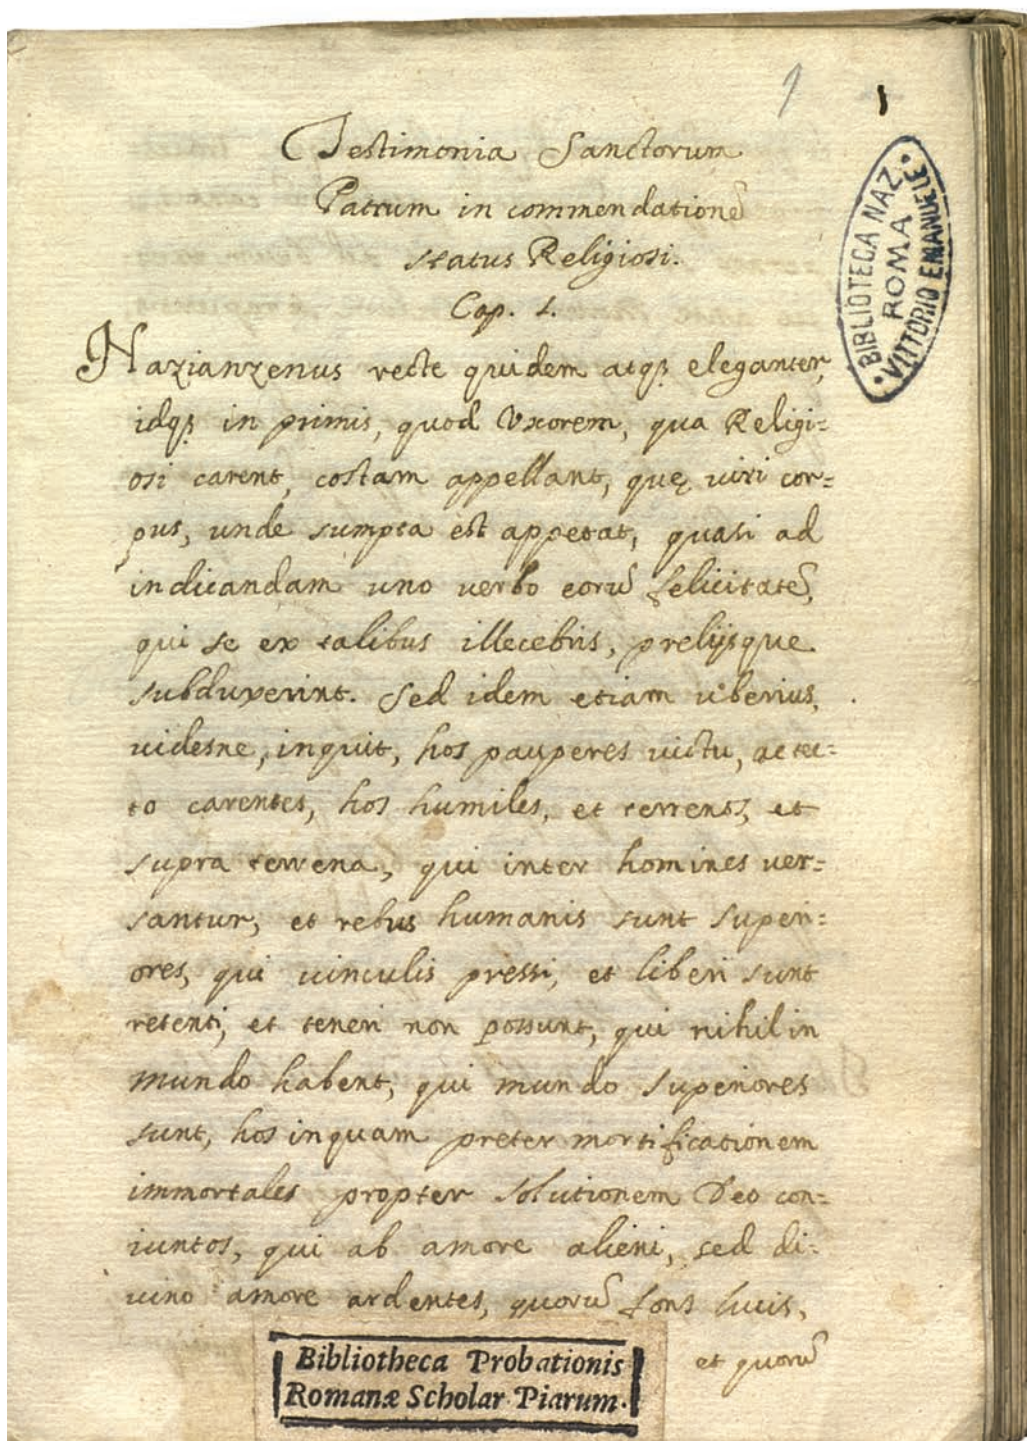 1
1
Testimonia Sanctorum
Patrum in commendationē
status Religiosi.
Cap. 1.
BIBLIOTECA NAZ.
ROMA
VITTORIO EMANUELE
Nazianzenus recte quidem atq; eleganter,
idq; in primis, quod Uxorem, qua Religi=
osi carent, costam appellant, quę viri cor=
pus, unde sumpta est appetat, quasi ad
indicandam uno verbo eorū felicitatē,
qui se ex talibus illecebris, prelijsque
subduxerint. Sed idem etiam uberius,
uidesne, inquit, hos pauperes uictu, ac tec=
to carentes, hos humiles, et terrenos, et
supra terrena, qui inter homines ver=
santur, et rebus humanis sunt superi=
ores, qui uinculis pressi, et liberi sunt
retenti, et teneri non possunt, qui nihil in
mundo habent, qui mundo superiores
sunt, hos inquam preter mortificationem
immortales propter solutionem Deo con=
iuntos, qui ab amore alieni, sed di=
uino amore ardentes, quorū fons lucis,
et quorū
Bibliotheca Probationis
Romanæ Scholar Piarum.